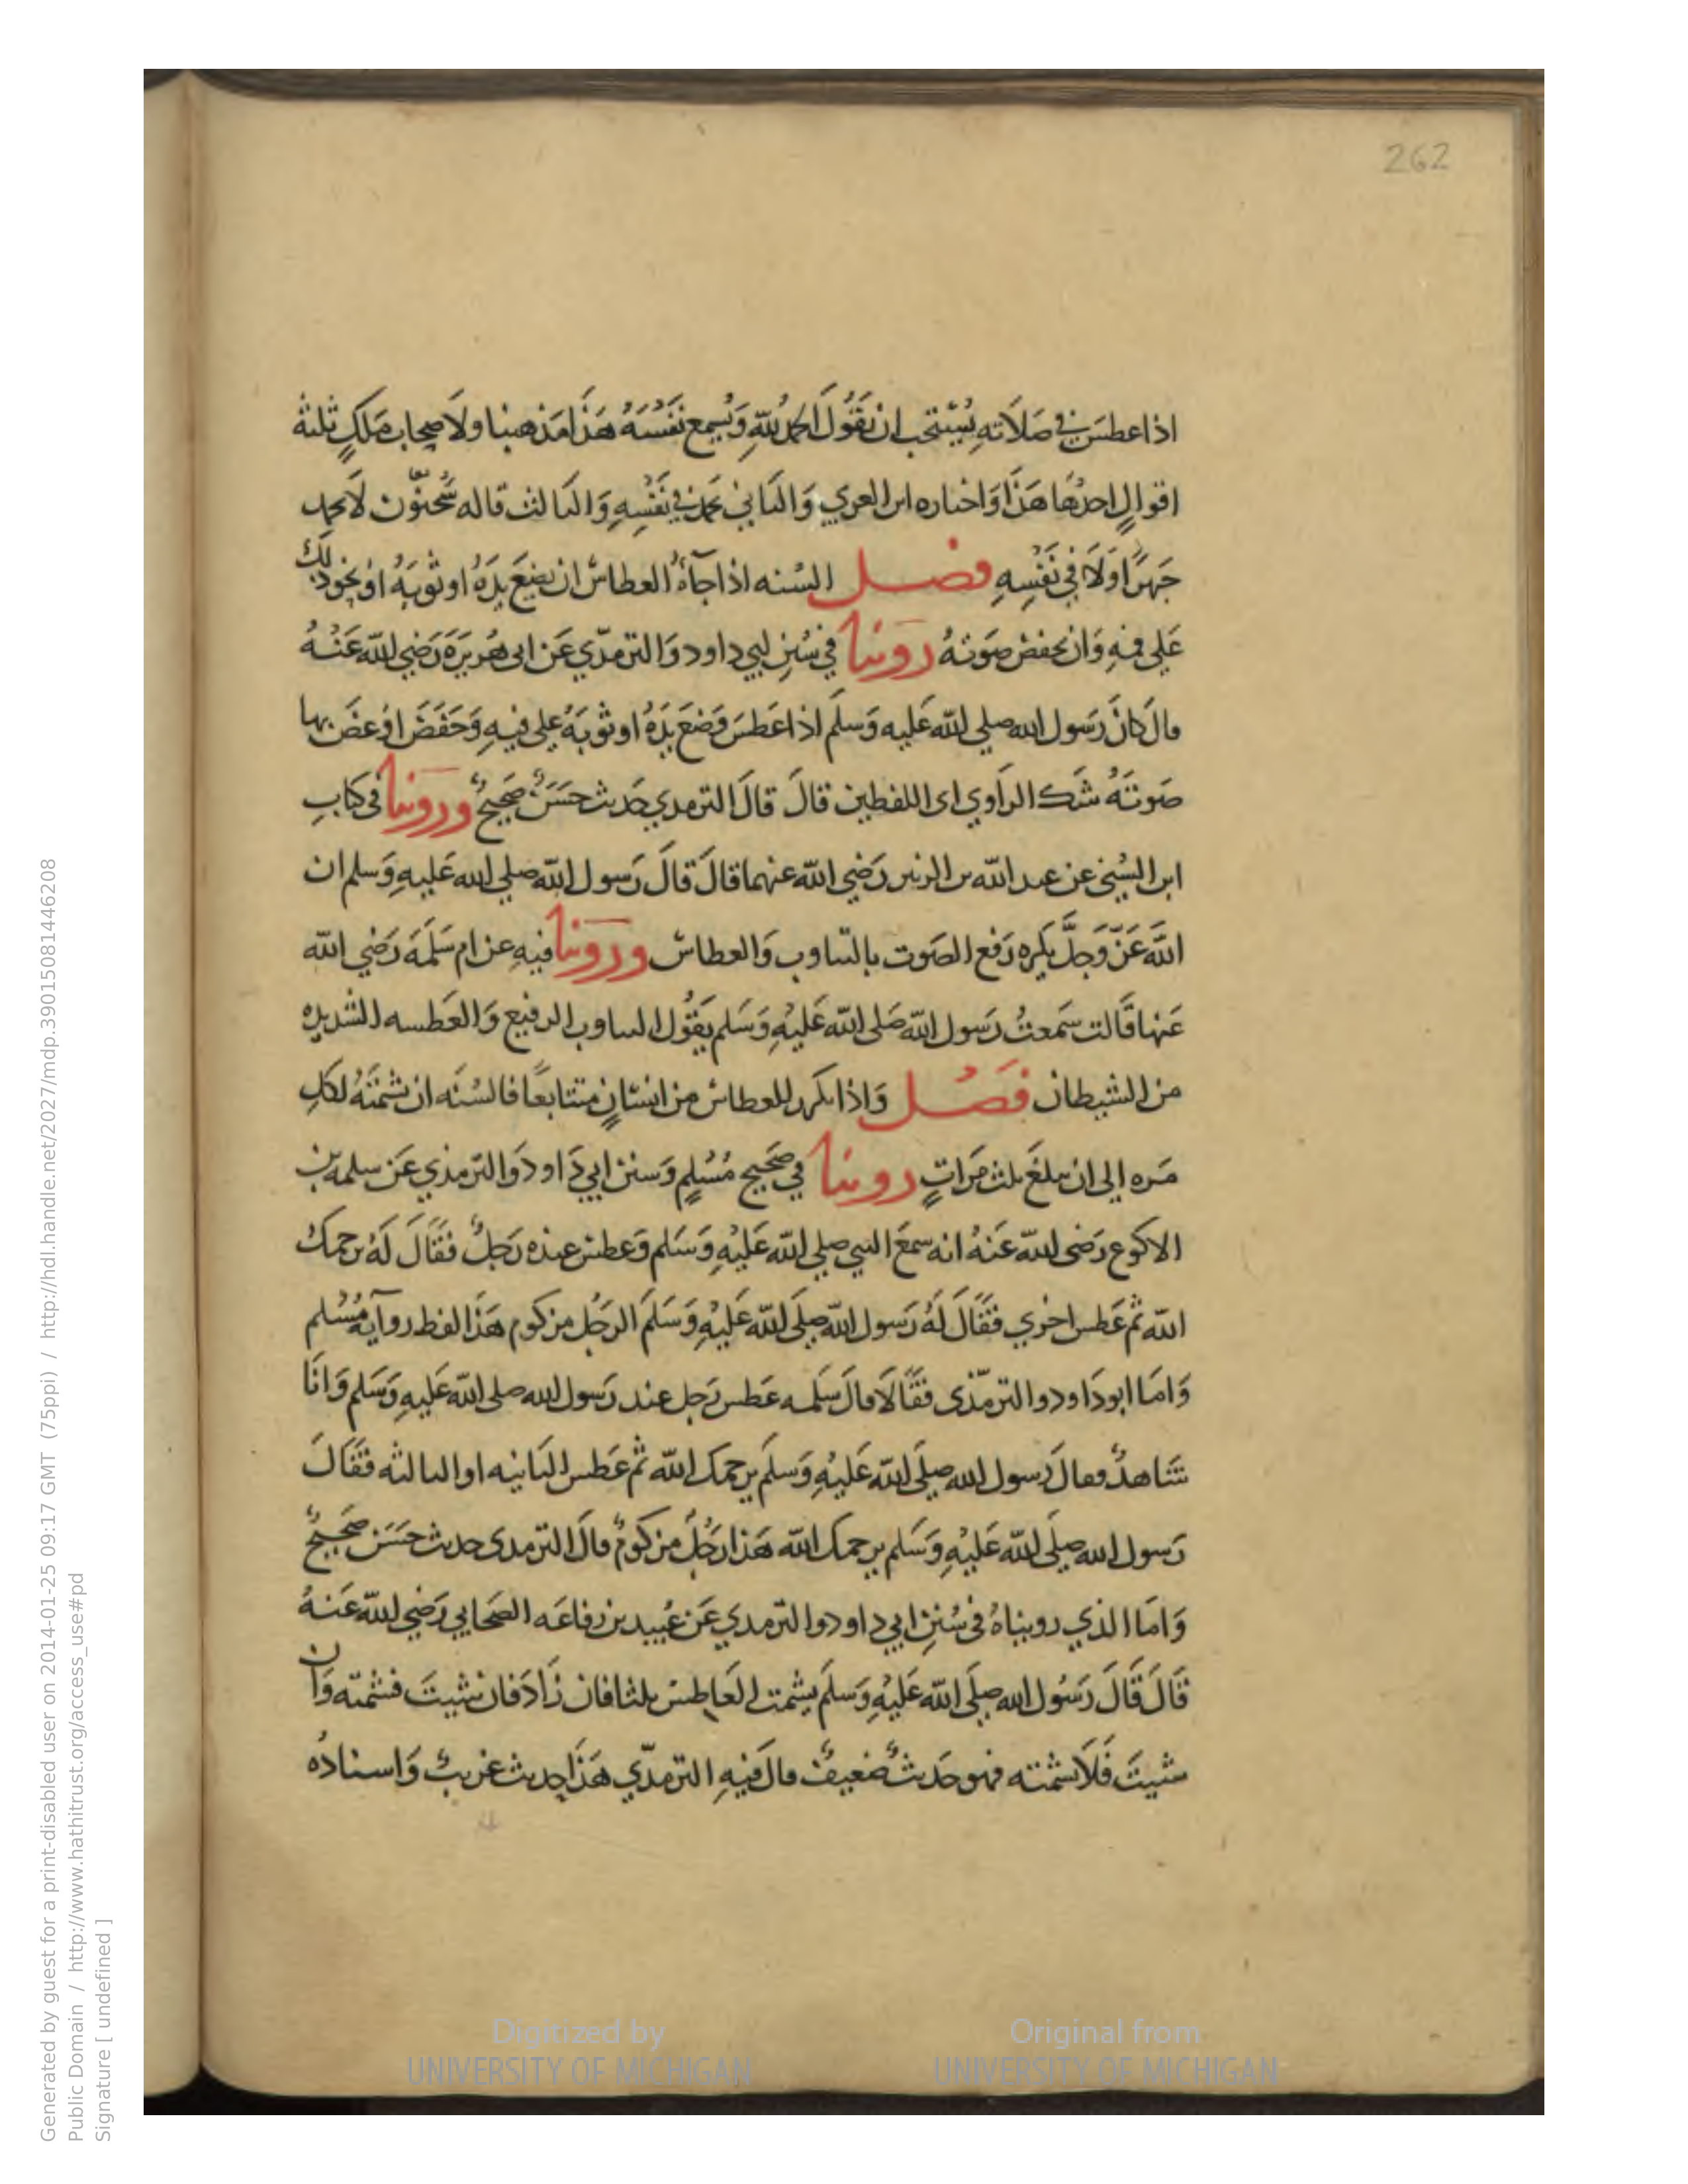 262
اذا عطس في صلاته يستحب ان يقول الحمد لله ويسمع نفسه هذا مذهبنا ولاصحاب ملك ثلثة
اقوال احدها هذا واختاره ابن العربي والثاني يحمد في نفسه والثالث قاله سحنون لا يحمد
جهرا ولا في نفسه فصل السنه اذا جآه العطاس ان يضع يده او ثوبه او نحو ذلك
على فمه وان يخفض صوته روينا في سنن ابي داود والترمذي عن ابي هريرة رضي الله عنه
قال كان رسول الله صلى الله عليه وسلم اذا عطس وضع يده او ثوبه على فيه وخفض او غض بها
صوته شك الراوي اى اللفظين قال قال الترمذي حديث حسن صحيح وروينا في كتاب
ابن السني عن عبد الله بن الزبير رضي الله عنهما قال قال رسول الله صلى الله عليه وسلم ان
الله عز وجل يكره رفع الصوت بالتثاوب والعطاس وروينا فيه عن ام سلمة رضي الله
عنها قالت سمعت رسول الله صلى الله عليه وسلم يقول التثاوب الرفيع والعطسه الشديده
من الشيطان فصل واذا تكرر العطاس من انسان متتابعا فالسنه ان تشمته لكل
مره الى ان يبلغ ثلث مرات روينا في صحيح مسلم وسنن ابي داود والترمذي عن سلمه بن
الاكوع رضى الله عنه انه سمع النبي صلى الله عليه وسلم وعطس عنده رجل فقال له يرحمك
الله ثم عطس اخري فقال له رسول الله صلى الله عليه وسلم الرجل مزكوم هذا لفظ روآية مسلم
واما ابو داود والترمذى فقالا قال سلمه عطس رجل عند رسول الله صلى الله عليه وسلم وانا
شاهد فقال رسول الله صلى الله عليه وسلم يرحمك الله ثم عطس الثانيه او الثالثه فقال
رسول الله صلى الله عليه وسلم يرحمك الله هذا رجل مزكوم قال الترمذى حديث حسن صحيح
واما الذي رويناه فى سنن ابي داود والترمذي عن عبيد بن رفاعه الصحابي رضي الله عنه
قال قال رسول الله صلى الله عليه وسلم يشمت العاطس ثلثا فان زاد فان شيت فشمته وان
شيت فلا تشمته فهو حديث ضعيف قال فيه الترمذي هذا حديث غريب واسناده
Generated by guest for a print-disabled user on 2014-01-25 09:17 GMT (75ppi) / http://hdl.handle.net/2027/mdp.39015081446208
Public Domain / http://www.hathitrust.org/access_use#pd
Signature [ undefined ]
Digitized by
UNIVERSITY OF MICHIGAN
Original from
UNIVERSITY OF MICHIGAN